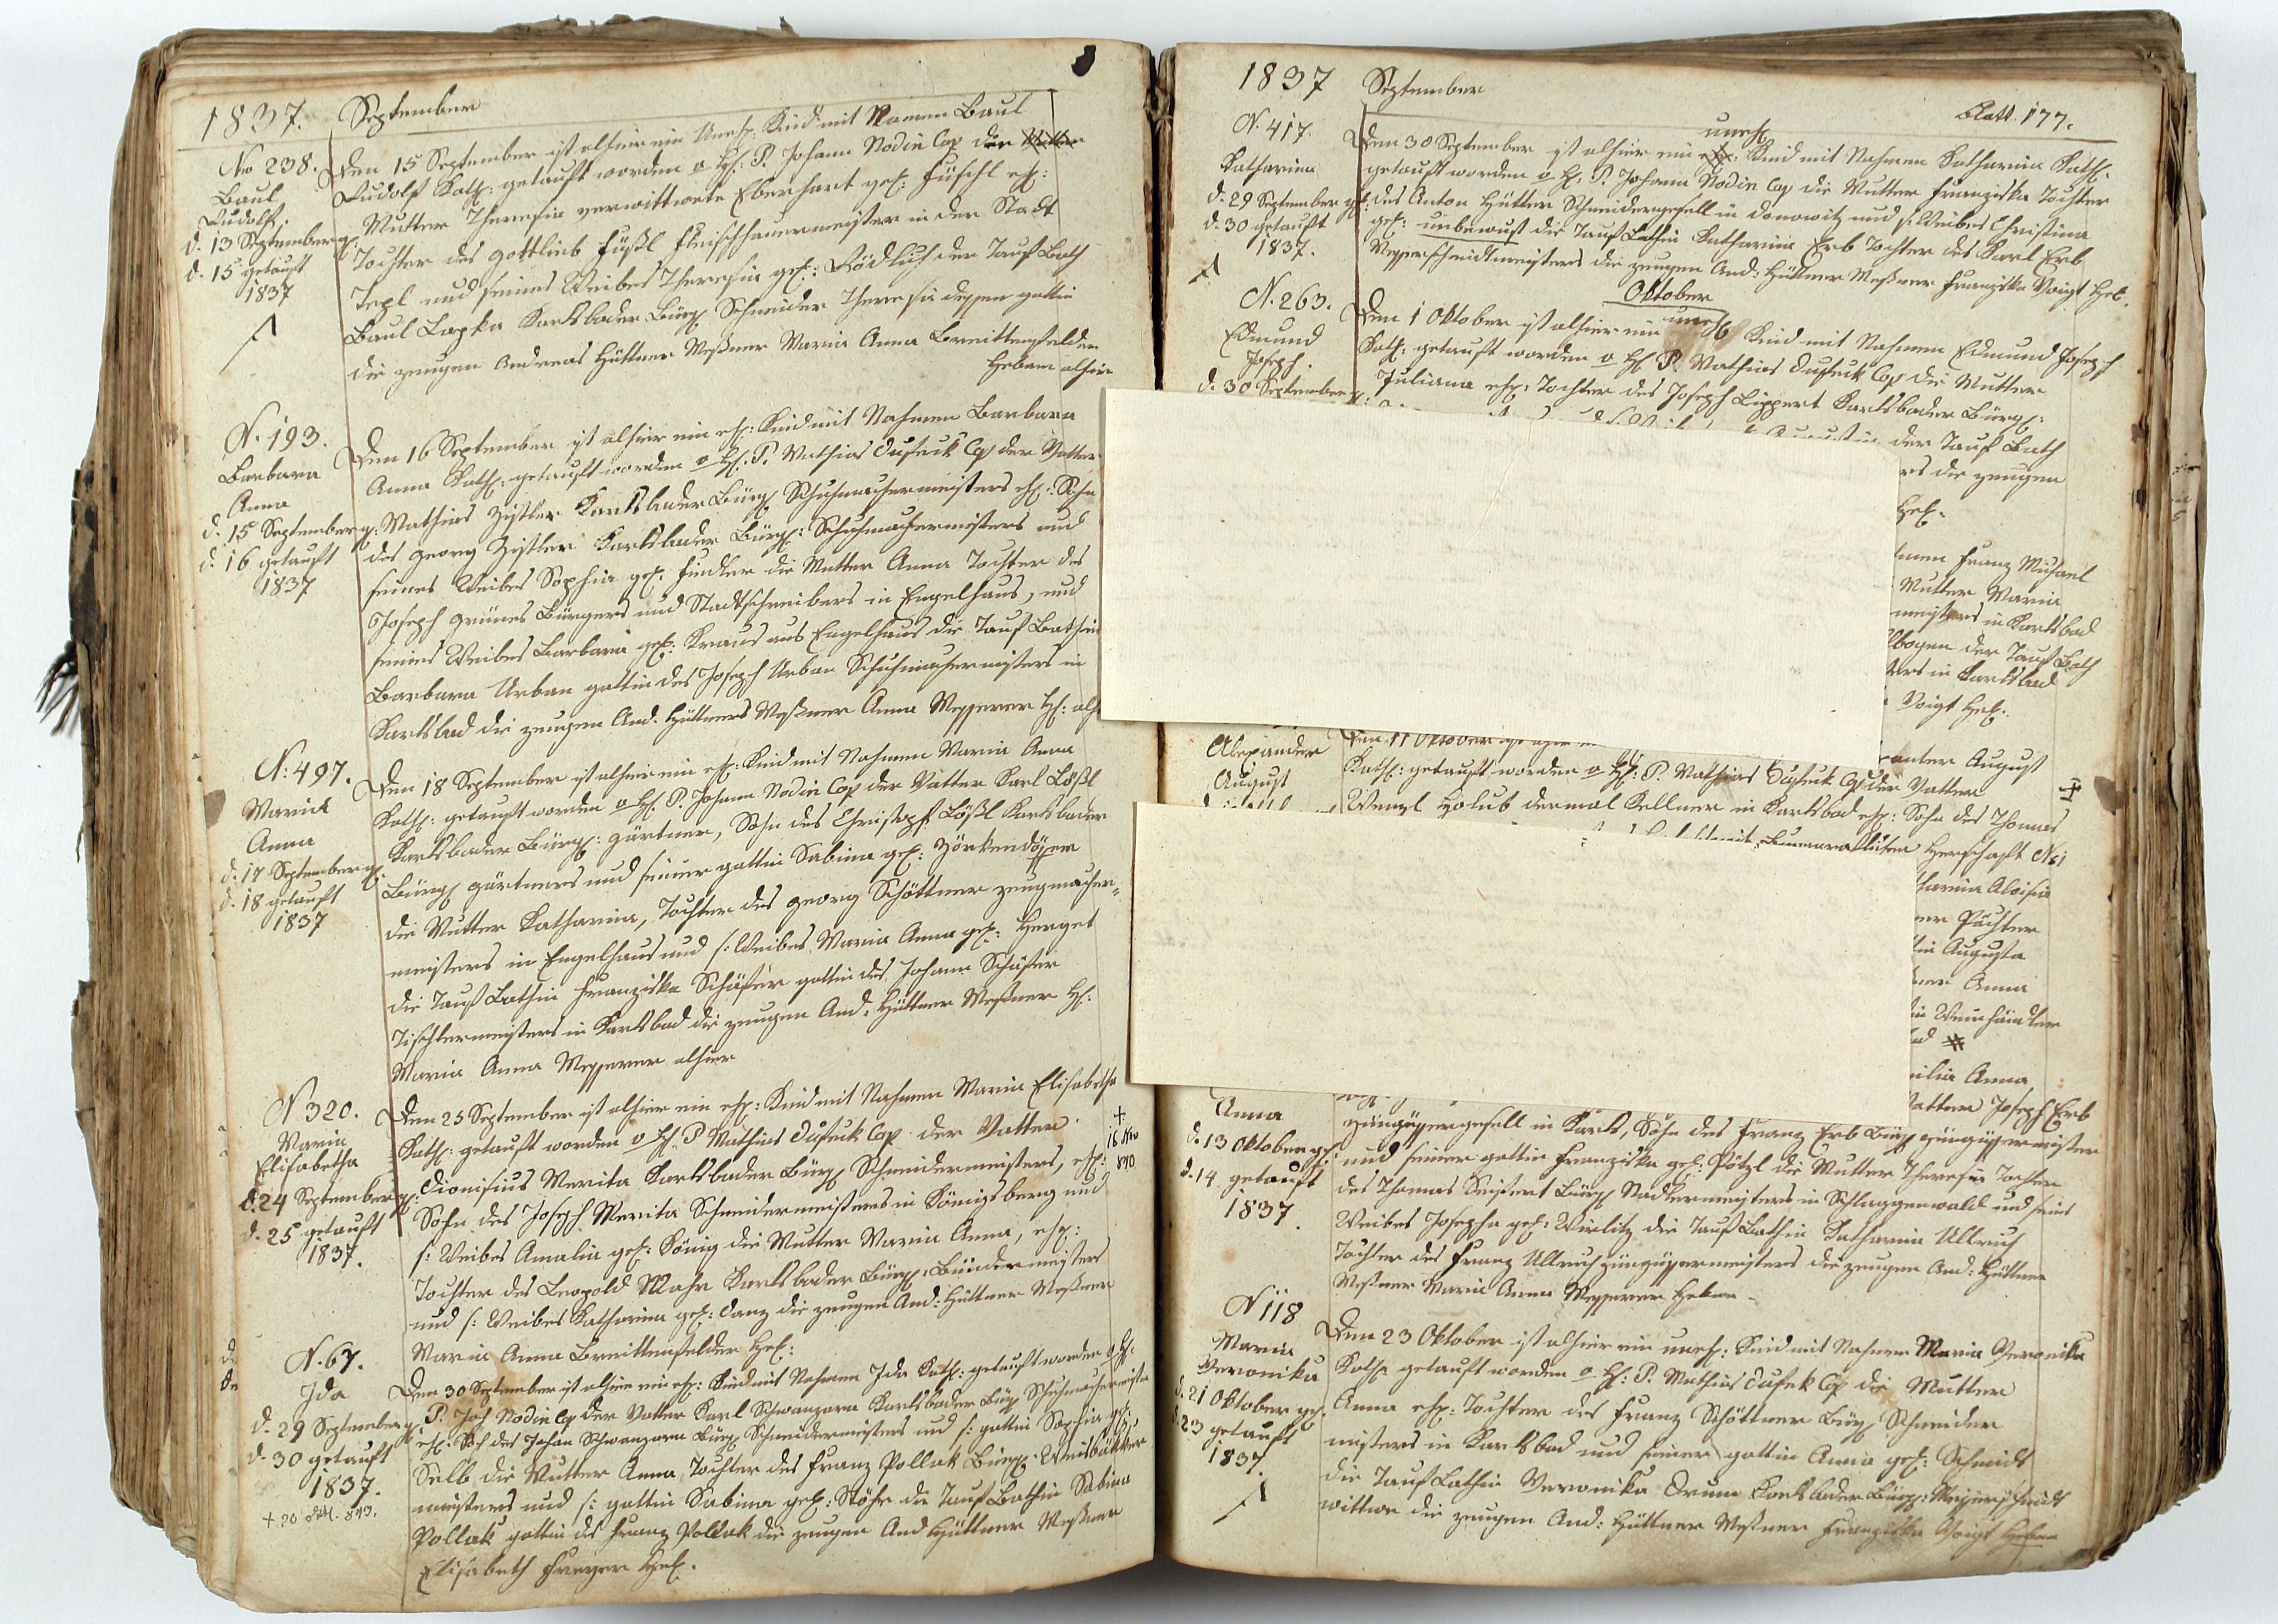 1837. September
No 238.
Baul
Rudolf.
d. 13 September g:
d. 15 getauft
1837
Den 15 September ist alhier ein Uneh: Kind mit Namen Baul
Rudolf Kath: getauft worden v H: P. Johann Nodin Cap der
Mutter Theresia verwittwete Eberhart geb: Füschl eh:
Tochter des Gottlieb Füßl Fleischhauermeister in der Stadt
Tepl und seines Weibes Theresia geb: Rödlich der Tauf Bath
Baul Lapka Karlsbader Bürg Schneider Theresia dessen gattin
die zeugen Andreas Hüttner Meßner Maria Anna Breittenfelder
Hebam alhier
N. 193.
Barbara
Anna
d. 15 September g:
d. 16 getauft
1837
Den 16 September ist alhier ein eh: Kind mit Nahmen Barbara
Anna Kath: getauft worden v H: P. Mathias Dufeck Cap der Vatter
Mathias Zistler Karlsbader Bürg Schuhmachermeisters eh: Sohn
des Georg Zistler Karlsbader Bürg: Schuhmachermeisters und
seines Weibes Sophia geb. Findler die Mutter Anna Tochter des
Joseph Grünes Bürgers und Stadtschreibers in Engelhaus, und
seines Weibes Barbara geb: Kraus aus Engelhaus die Tauf Bathin
Barbara Urban gattin des Joseph Urban Schuhmachermeisters in
Karlsbad die zeugen And. Hüttners Meßner Anna Messerer H: alh
N: 497.
Maria
Anna
d. 17 September g:
d. 18 getauft
1837
Den 18 September ist alhier ein eh: Kind mit Nahmen Maria Anna
Kath: getauft worden v H: P. Johann Nodin Cap der Vatter Karl Lößl
Karlsbader Bürg: gärtner, Sohn des Christoph Lößl Karlsbader
Bürg gärtners und seiner gattin Sabina geb: Zörkendörfer
die Mutter Katharina, Tochter des Georg Schöttner zeugmacher-
meisters in Engelhaus und s: Weibes Maria Anna geb: Herget
die Tauf Bathin Franziska Schäfer gattin des Johann Schäfer
Tischlermeisters in Karlsbad die zeugen And: Hüttner Meßner H:
Maria Anna Messerer alhier
N 320.
Maria
Elisabetha
d. 24 September g:
d. 25 getauft
1837.
Den 25 September ist alhier ein eh: Kind mit Nahmen Maria Elisabetha
Kath: getauft worden v H: P Mathias Dufeck Cap der Vatter
Dionisius Merita Karlsbader Bürg Schneidermeisters, eh:
Sohn des Joseph Merita Schneidermeisters in Königsberg und
s: Weibes Amalia geb: König die Mutter Maria Anna, eh:
Tochter des Leopold Mahr Karlsbader Bürg: Bindermeisters
und s: Weibes Katharina geb: Danz die zeugen And: Hüttner Meßner
Maria Anna Breittenfelder Heb:
+
16 Nov
840
N. 67.
Ida
d. 29 September g:
d. 30 getauft
1837.
Den 30 September ist alhier ein eh: Kind mit Nahmen Ida Kath: getauft worden v H:
P. Joh Nodin Cap der Vatter Karl Schwanzara Karlsbader Bürg Schuhmachermeister
eh: Soh des Johan Schwanzara Bürg Schneidermeisters und s: gattin Sophia geb:
Selb die Mutter Anna, Tochter des Franz Pollak Bürg: Weisbäcker
meisters und s: gattin Sabina geb: Stöhr die Tauf Bathin Sabina
Pollak gattin des Franz Pollak die zeugen And Hüttner Meßner
Elisabeth Freyer Heb.
1837 September
blatt. 177.
N. 417.
Katharina
d. 29 September g:
d. 30 getauft
1837.
Den 30 September ist alhier ein uneh: Kind mit Nahmen Katharina Kath:
getauft worden v H: P. Johann Nodin Cap die Mutter Franziska Tochter
des Anton Hütter Schneidergesell in Donowitz und s: Weibes Christina
geb: unbewust die Tauf Bathin Katharina Erb Tochter des Karl Erb
Messerschmidtmeisters die zeugen And: Hüttner Meßner Franziska Voigt Heb.
Oktober
N. 263.
Edmund
Joseph.
d. 30 September g:
Den 1 Oktober ist alhier ein uneh Kind mit Nahmen Edmund Joseph
Kath: getauft worden v H: P. Mathias Dufeck Cap die Mutter
Juliana eh: Tochter des Joseph Lippert Karlsbader Bürg:
der Tauf Bath
die zeugen
Heb.
Franz Michael
Mutter Maria
meisters in Karlsbad
der Tauf Bath
in Karlsbad
Voigt Heb:
Alexander
August
Den 11 Oktober
August
Kath: getauft worden v H: P. Mathias Dufeck Cap der Vatter
Wenzl Holub dermal Kellner in Karlsbad eh: Sohn des Thomas
Herschaft
Aloisia
Pächter
Augusta
Anna
Weinhändler
Anna
Vatter Joseph Erb
Anna
d. 13 Oktober g:
d. 14 getauft
1837
züngüssergesell in Karls, Sohn des Franz Erb Bürg züngüssermeister
und seiner gattin Franziska geb: Pötzl die Mutter Theresia Tochter
des Thomas Seifert Bürg Nadlermeisters in Schlaggenwald und seines
Weibes Josepha geb: Wirlitz die Tauf Bathin Katharina Ullrich
Tochter des Franz Ullrich züngüssermeisters die zeugen And: Hüttner
Meßner Maria Anna Messerer Hebam
N 118
Maria
Veronika
d. 21 Oktober g:
d. 23 getauft
1837.
Den 23 Oktober ist alhier ein uneh: Kind mit Nahmen Maria Veronika
Kath: getauft worden v H: P. Mathias Dufek Cap die Mutter
Anna eh: Tochter des Franz Schöttner Bürg Schneider
meisters in Karlsbad und seiner gattin Anna geb: Schmidt
die Tauf Bathin Veronika Drum Karlsbader Bürg: Messerschmidt
wittwe die zeugen And: Hüttner Meßner Franziska Voigt Hebam